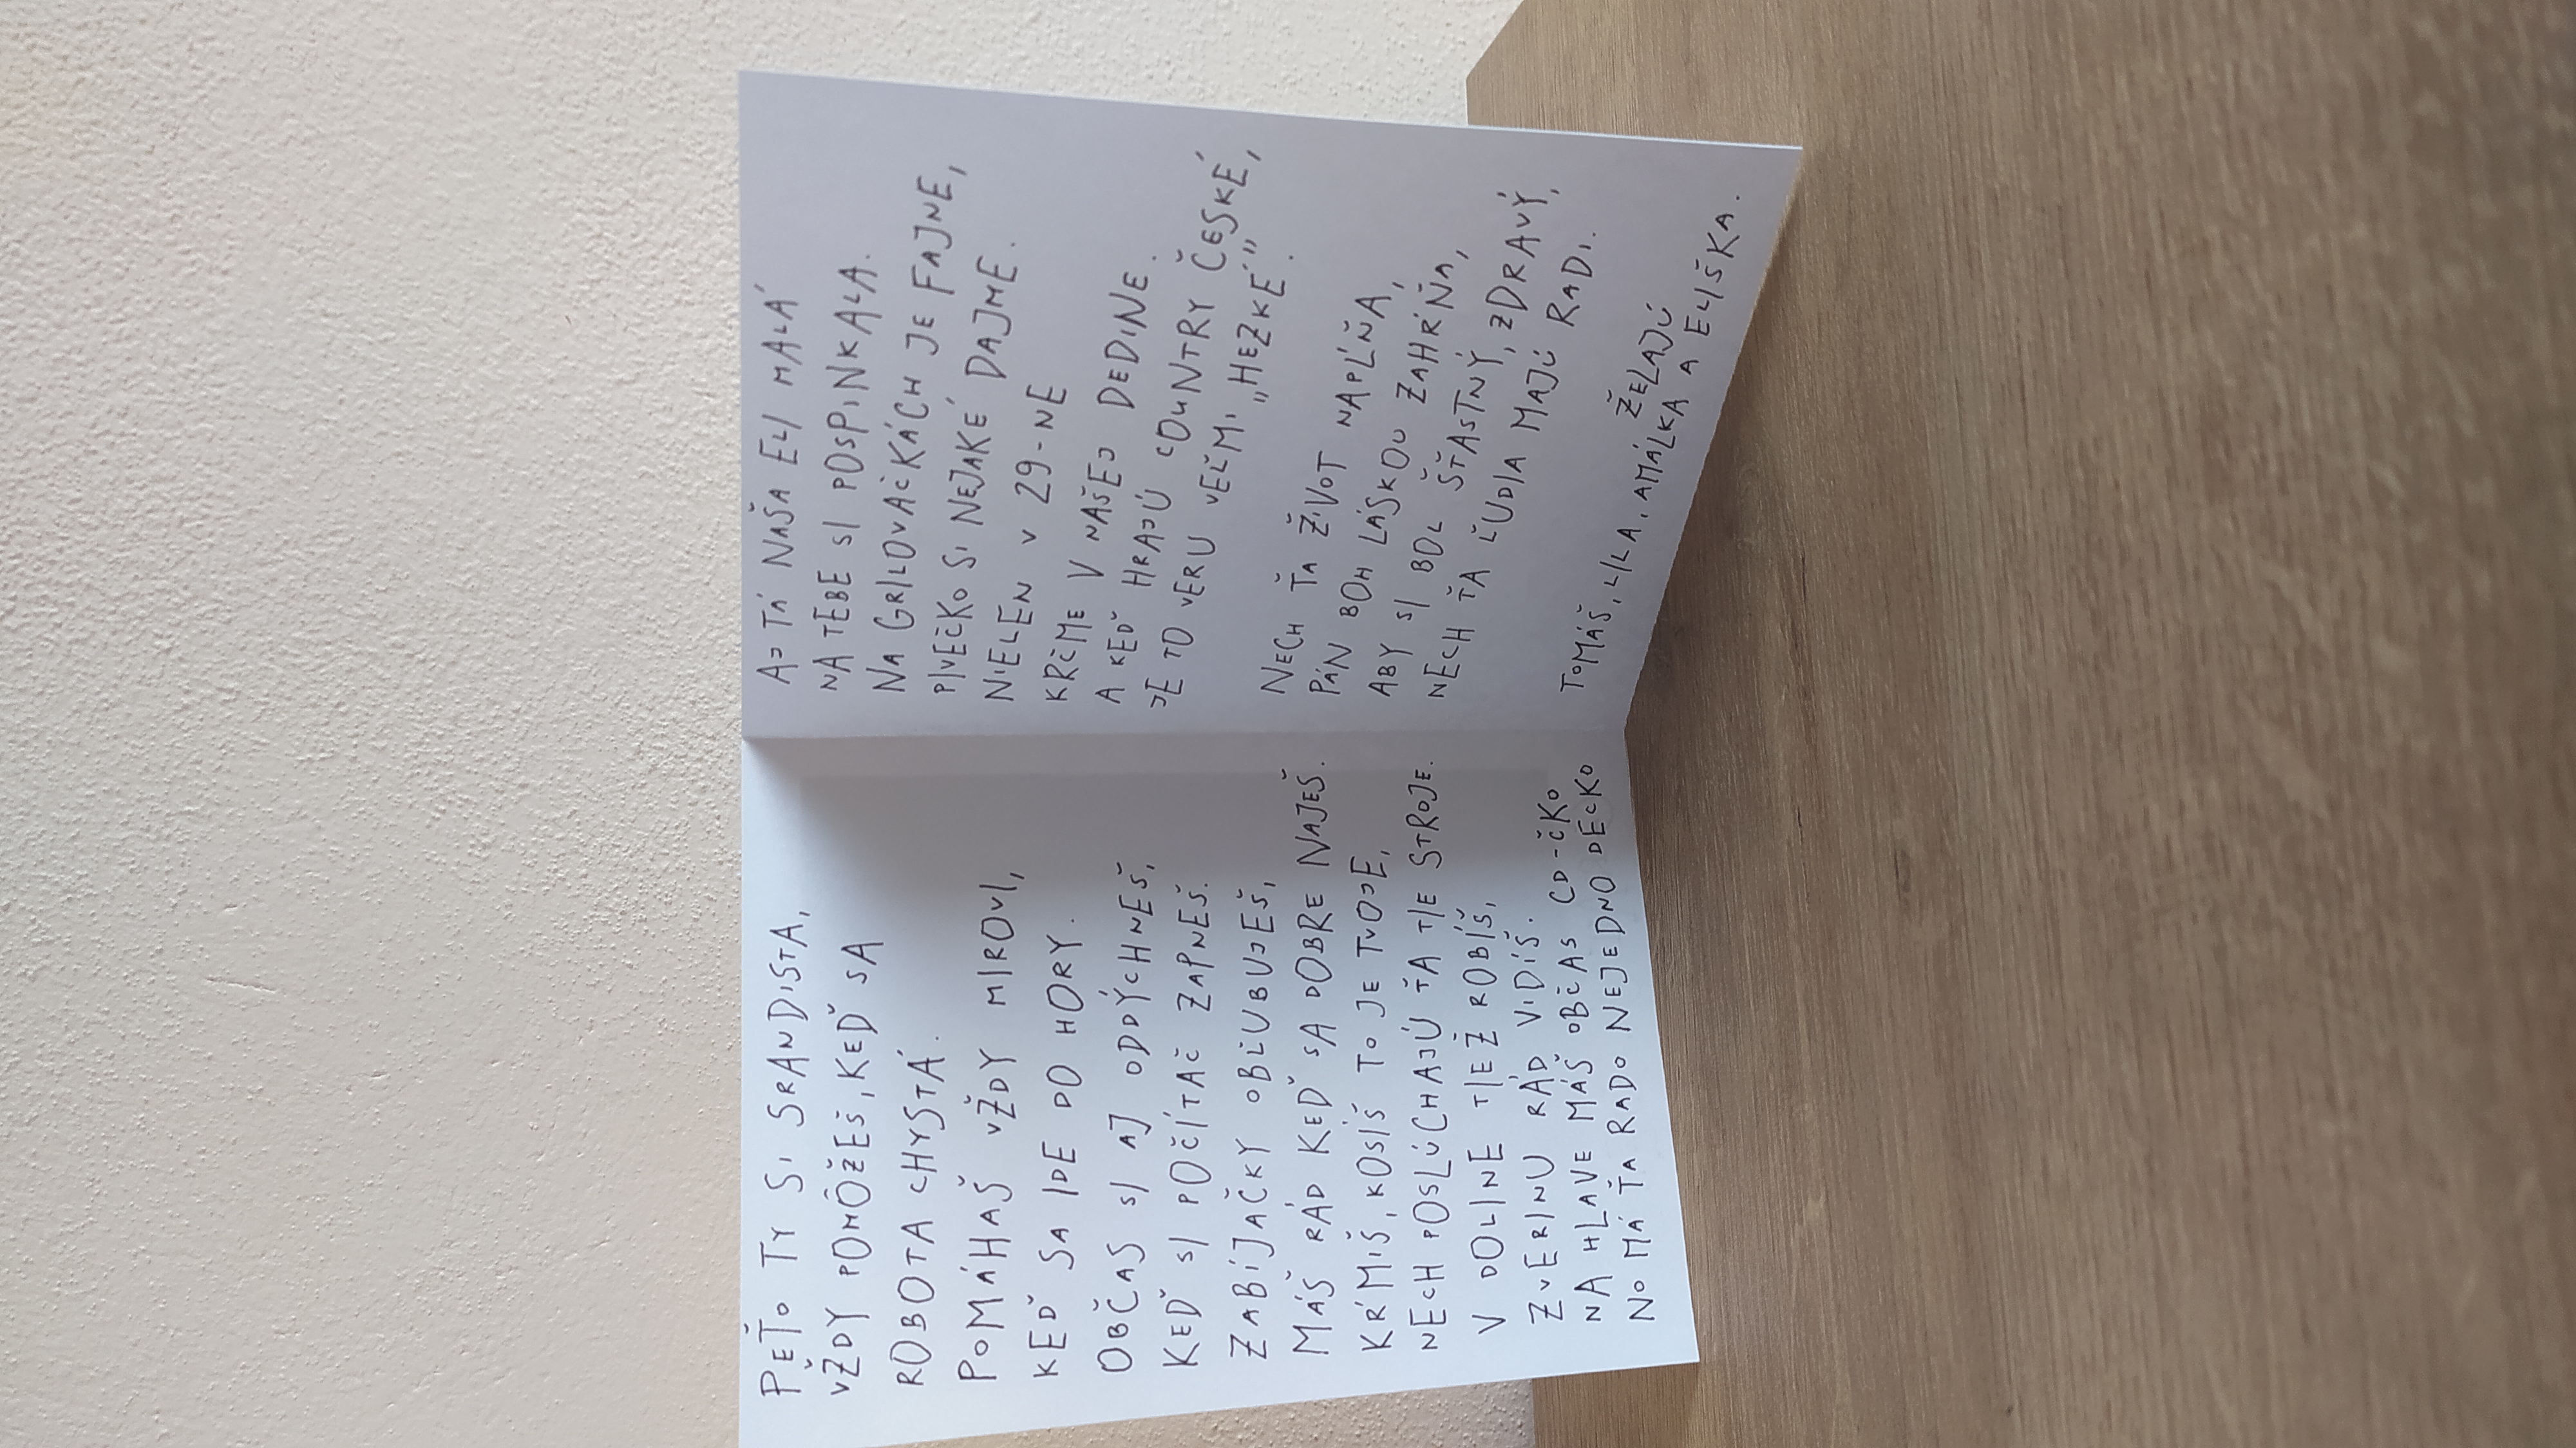 PEŤO TY SI SRANDISTA,
VŽDY POMÔŽEŠ, KEĎ SA
ROBOTA CHYSTÁ.
POMÁHAŠ VŽDY MIROVI,
KEĎ SA IDE DO HORY.
OBČAS SI AJ ODDÝCHNEŠ,
KEĎ SI POČÍTAČ ZAPNEŠ.
ZABÍJAČKY OBĽUBUJEŠ,
MÁŠ RÁD KEĎ SA DOBRE NAJEŠ.
KŔMIŠ, KOSÍŠ TO JE TVOJE,
NECH POSLÚCHAJÚ ŤA TIE STROJE.
V DOLINE TIEŽ ROBÍŠ,
ZVERINU RÁD VIDÍŠ.
NA HLAVE MÁŠ OBČAS CD-ČKO
NO MÁ ŤA RADO NEJEDNO DECKO
AJ TÁ NAŠA ELI MALÁ
NA TEBE SI POSPINKALA.
NA GRILOVAČKÁCH JE FAJNE,
PIVEČKO SI NEJAKÉ DAJME.
NIELEN V 29-NE
KRČME V NAŠEJ DEDINE.
A KEĎ HRAJÚ COUNTRY ČESKÉ,
JE TO VERU VEĽMI „HEZKÉ„.
NECH ŤA ŽIVOT NAPĹŇA,
PÁN BOH LÁSKOU ZAHŔŇA,
ABY SI BOL ŠŤASTNÝ, ZDRAVÝ,
NECH ŤA ĽUDIA MAJÚ RADI.
TOMÁŠ, LILA, AMÁLKA A ELIŠKA.
ŽELAJÚ